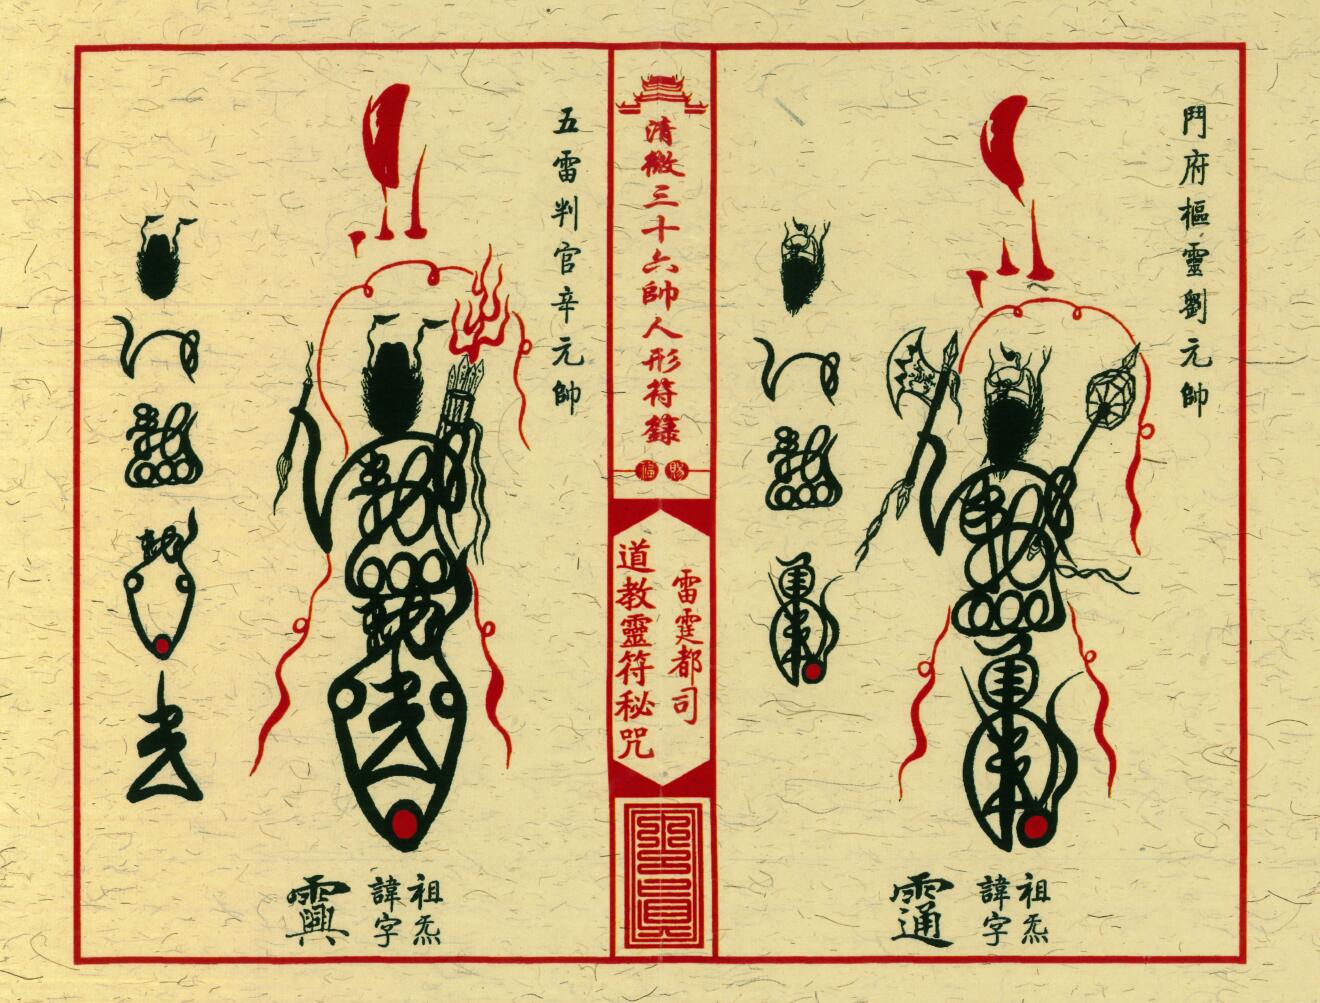 鬥府樞靈劉元帥
祖炁
諱字
清微三十六帥人形符籙
賜福
雷霆都司
道教靈符秘咒
五雷判官辛元帥
祖炁
諱字